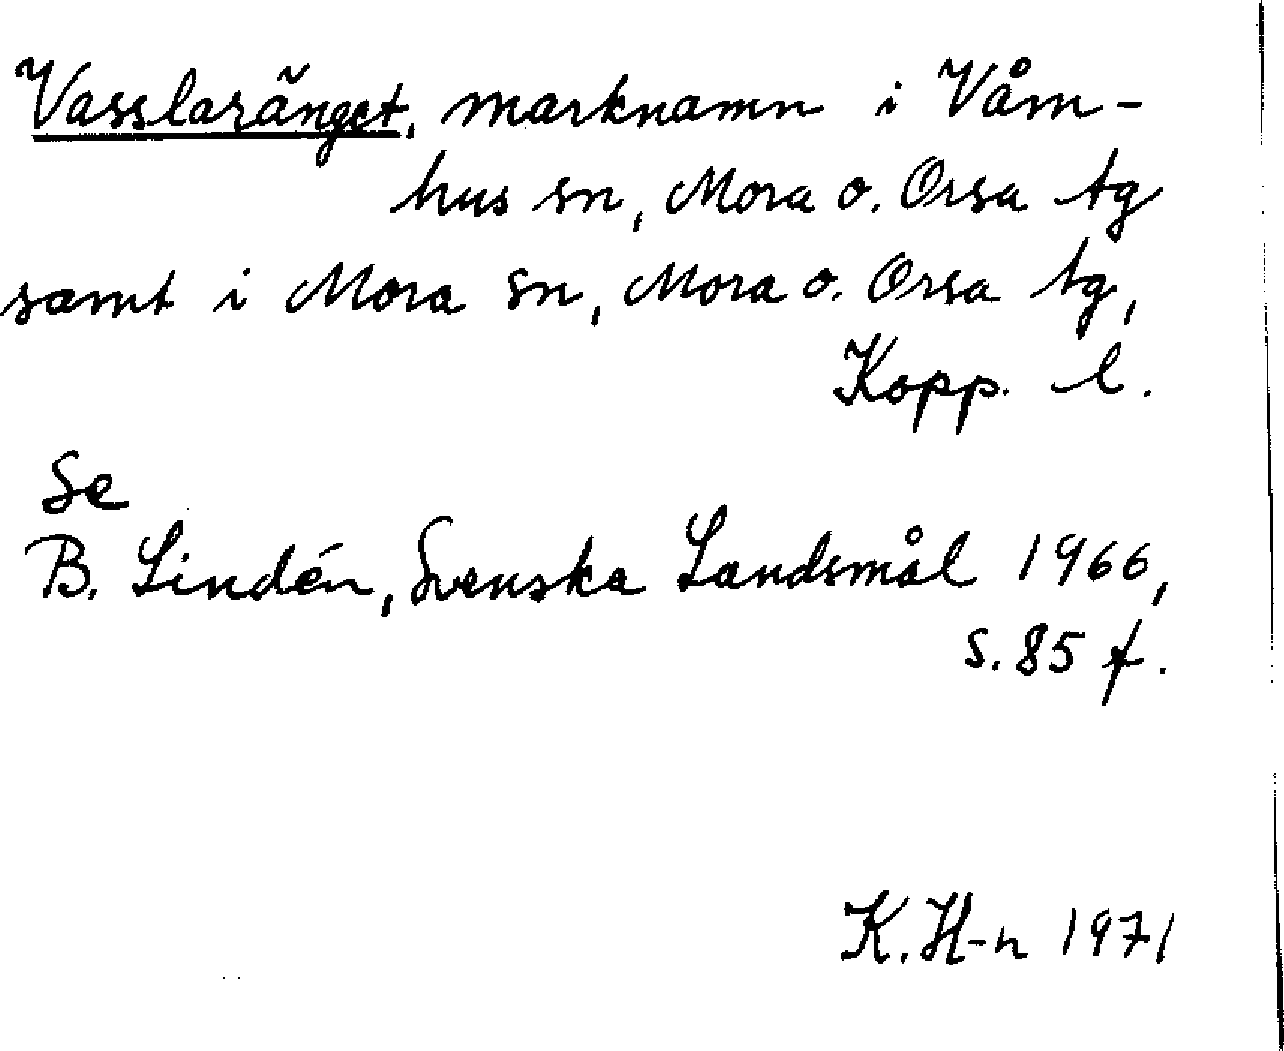 Vasslaränget, marknamn i Våm-
hus sn, Mora o. Orsa tg
samt i Mora sn, Mora o. Orsa tg,
Kopp. l.
Se
B. Lindén, Svenska Landsmål 1966,
s. 85 f.
K. H-n 1971